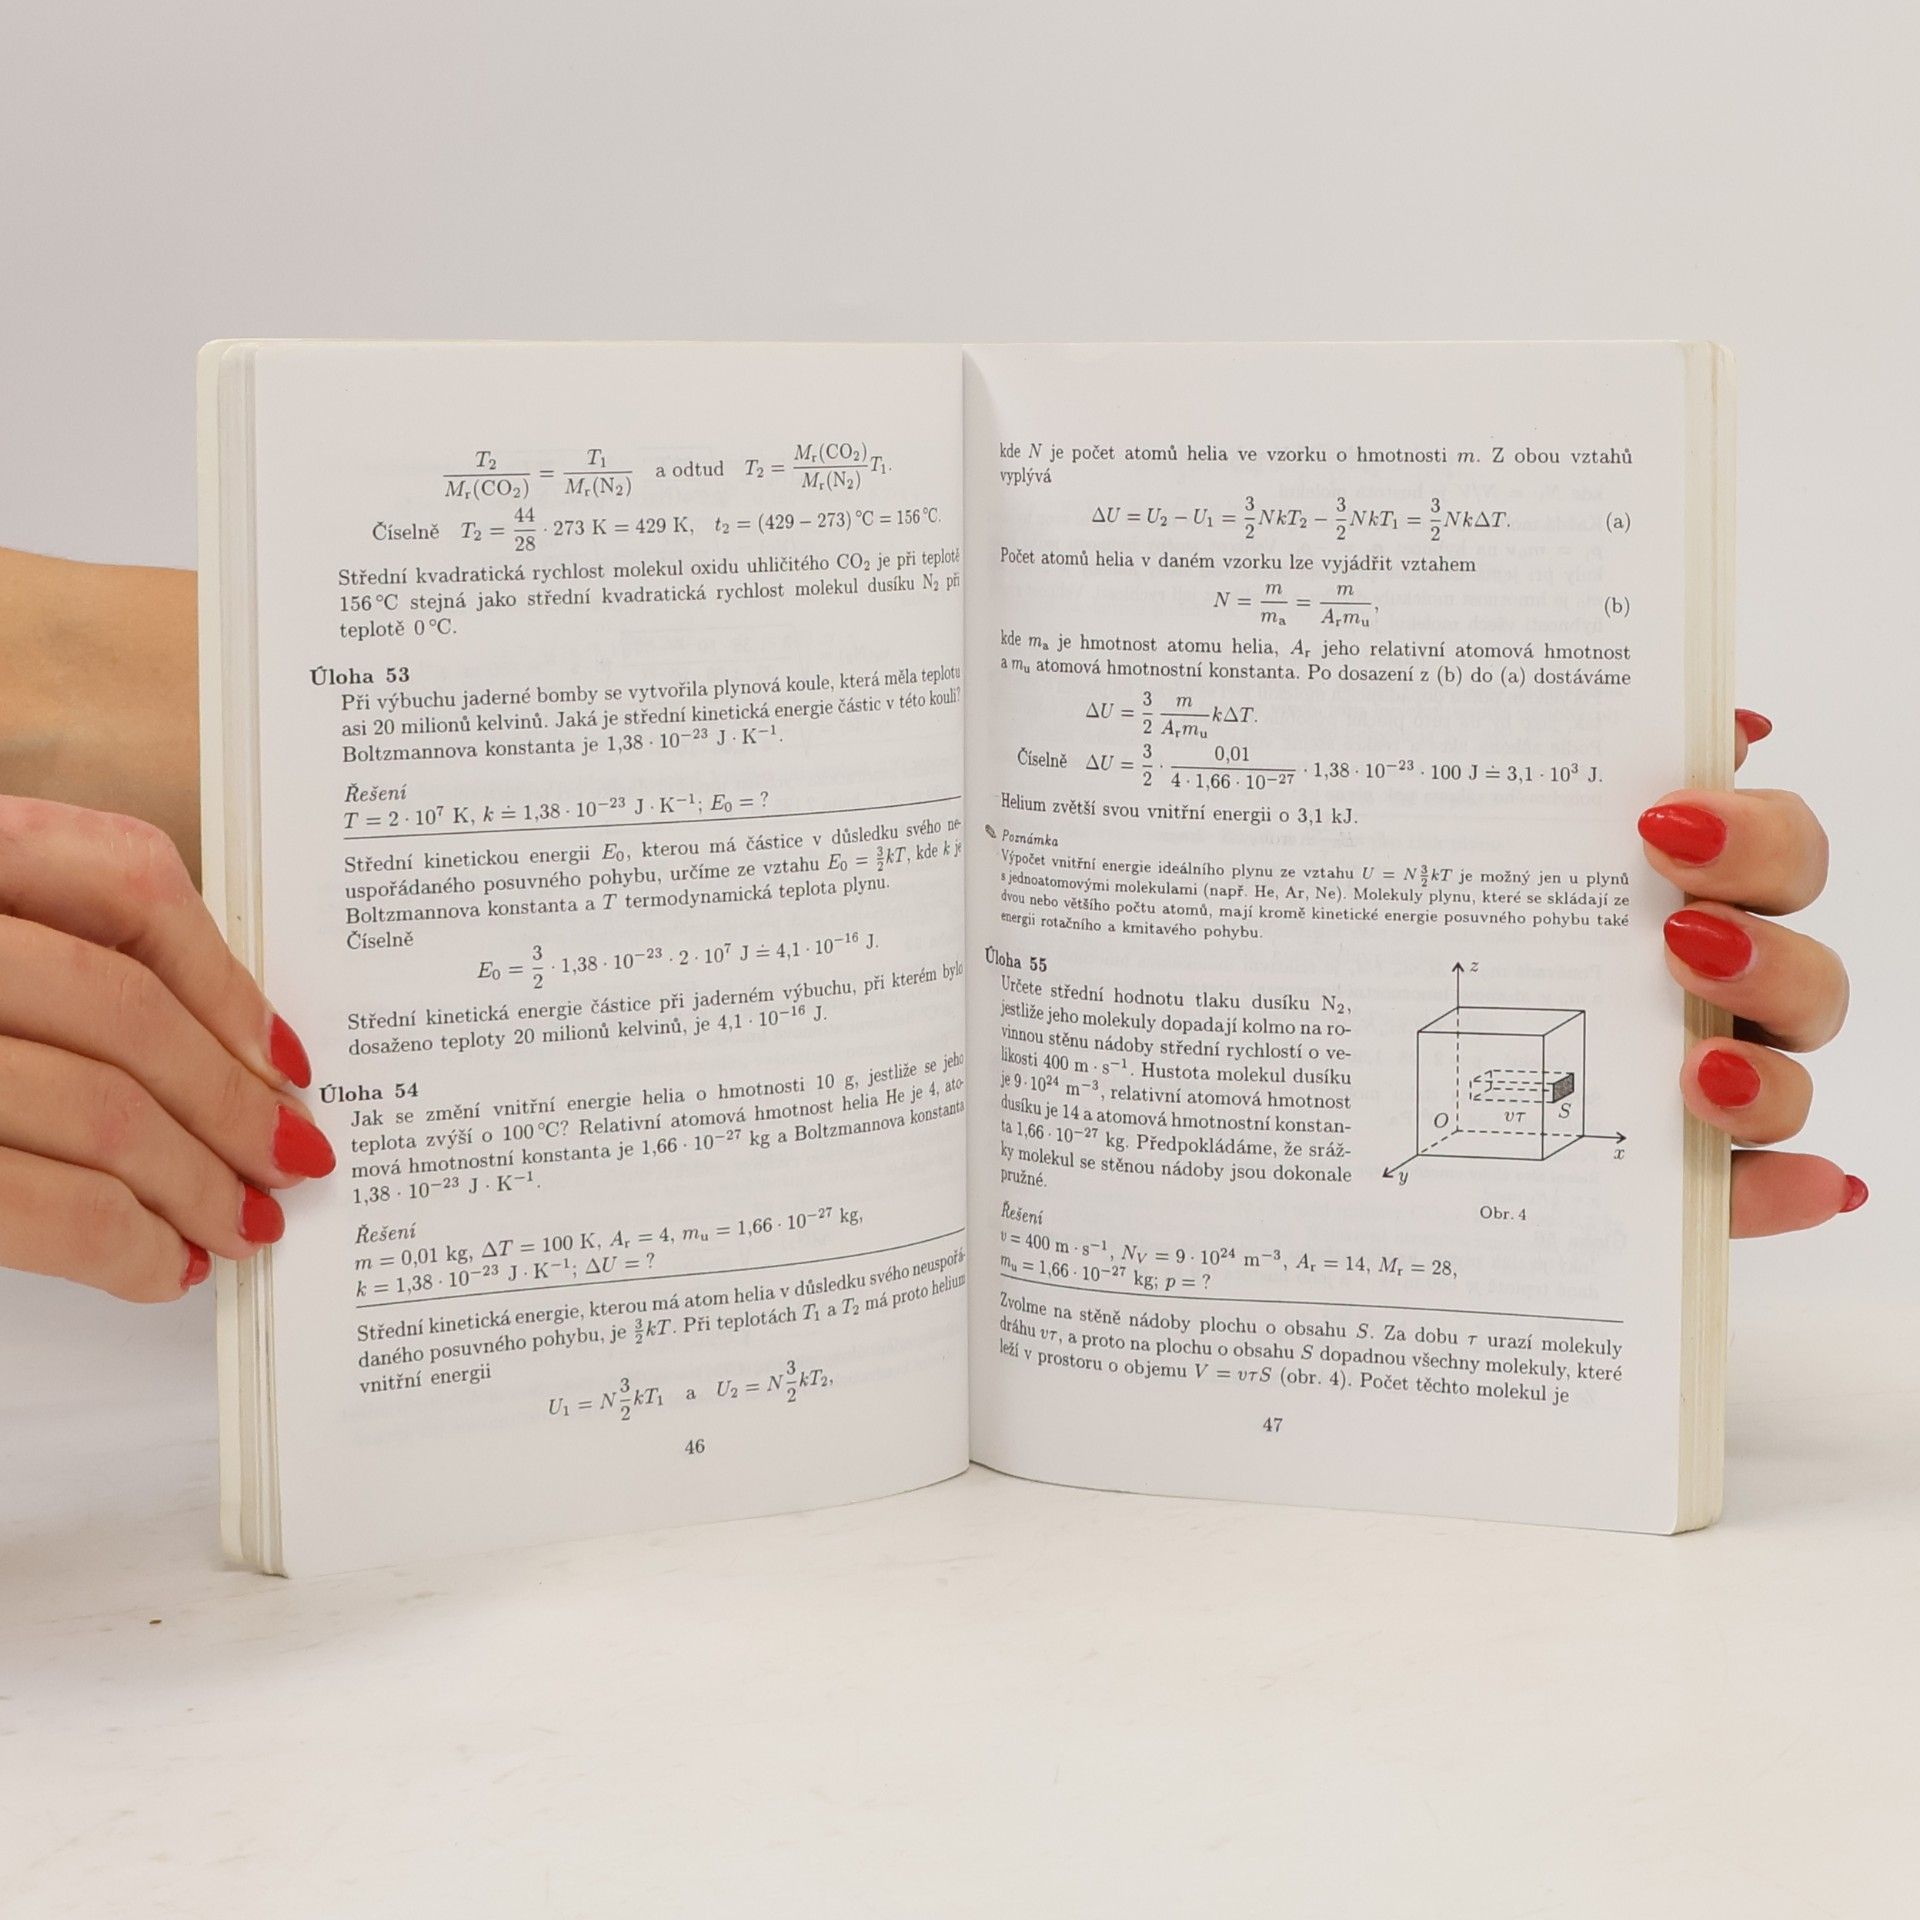 T₂/Mᵣ(CO₂) = T₁/Mᵣ(N₂) a odtud T₂ = Mᵣ(CO₂)/Mᵣ(N₂) T₁.
Číselně T₂ = 44/28 · 273 K = 429 K, t₂ = (429 − 273) °C = 156 °C.
Střední kvadratická rychlost molekul oxidu uhličitého CO₂ je při teplotě
156 °C stejná jako střední kvadratická rychlost molekul dusíku N₂ při
teplotě 0 °C.
Úloha 53
Při výbuchu jaderné bomby se vytvořila plynová koule, která měla teplotu
asi 20 milionů kelvinů. Jaká je střední kinetická energie částic v této kouli?
Boltzmannova konstanta je 1,38 · 10⁻²³ J · K⁻¹.
Řešení
T = 2 · 10⁷ K, k ≐ 1,38 · 10⁻²³ J · K⁻¹; E₀ = ?
Střední kinetickou energii E₀, kterou má částice v důsledku svého ne-
uspořádaného posuvného pohybu, určíme ze vztahu E₀ = 3/2 kT, kde k je
Boltzmannova konstanta a T termodynamická teplota plynu.
Číselně
E₀ = 3/2 · 1,38 · 10⁻²³ · 2 · 10⁷ J ≐ 4,1 · 10⁻¹⁶ J.
Střední kinetická energie částice při jaderném výbuchu, při kterém bylo
dosaženo teploty 20 milionů kelvinů, je 4,1 · 10⁻¹⁶ J.
Úloha 54
Jak se změní vnitřní energie helia o hmotnosti 10 g, jestliže se jeho
teplota zvýší o 100 °C? Relativní atomová hmotnost helia He je 4, ato-
mová hmotnostní konstanta je 1,66 · 10⁻²⁷ kg a Boltzmannova konstanta
1,38 · 10⁻²³ J · K⁻¹.
Řešení
m = 0,01 kg, ΔT = 100 K, Aᵣ = 4, mᵤ = 1,66 · 10⁻²⁷ kg,
k = 1,38 · 10⁻²³ J · K⁻¹; ΔU = ?
Střední kinetická energie, kterou má atom helia v důsledku svého neuspořá-
daného posuvného pohybu, je 3/2 kT. Při teplotách T₁ a T₂ má proto helium
vnitřní energii
U₁ = N 3/2 kT₁ a U₂ = N 3/2 kT₂,
46
kde N je počet atomů helia ve vzorku o hmotnosti m. Z obou vztahů
vyplývá
ΔU = U₂ − U₁ = 3/2 NkT₂ − 3/2 NkT₁ = 3/2 NkΔT. (a)
Počet atomů helia v daném vzorku lze vyjádřit vztahem
N = m/mₐ = m/Aᵣmᵤ, (b)
kde mₐ je hmotnost atomu helia, Aᵣ jeho relativní atomová hmotnost
a mᵤ atomová hmotnostní konstanta. Po dosazení z (b) do (a) dostáváme
ΔU = 3/2 m/Aᵣmᵤ kΔT.
Číselně ΔU = 3/2 · 0,01/4 · 1,66 · 10⁻²⁷ · 1,38 · 10⁻²³ · 100 J ≐ 3,1 · 10³ J.
Helium zvětší svou vnitřní energii o 3,1 kJ.
✎ Poznámka
Výpočet vnitřní energie ideálního plynu ze vztahu U = N 3/2 kT je možný jen u plynů
s jednoatomovými molekulami (např. He, Ar, Ne). Molekuly plynu, které se skládají ze
dvou nebo většího počtu atomů, mají kromě kinetické energie posuvného pohybu také
energii rotačního a kmitavého pohybu.
Úloha 55
Určete střední hodnotu tlaku dusíku N₂,
jestliže jeho molekuly dopadají kolmo na ro-
vinnou stěnu nádoby střední rychlostí o ve-
likosti 400 m · s⁻¹. Hustota molekul dusíku
je 9 · 10²⁴ m⁻³, relativní atomová hmotnost
dusíku je 14 a atomová hmotnostní konstan-
ta 1,66 · 10⁻²⁷ kg. Předpokládáme, že sráž-
ky molekul se stěnou nádoby jsou dokonale
pružné.
z
O
vτ
S
x
y
Obr. 4
Řešení
v = 400 m · s⁻¹, N_V = 9 · 10²⁴ m⁻³, Aᵣ = 14, Mᵣ = 28,
mᵤ = 1,66 · 10⁻²⁷ kg; p = ?
Zvolme na stěně nádoby plochu o obsahu S. Za dobu τ urazí molekuly
dráhu vτ, a proto na plochu o obsahu S dopadnou všechny molekuly, které
leží v prostoru o objemu V = vτS (obr. 4). Počet těchto molekul je
47